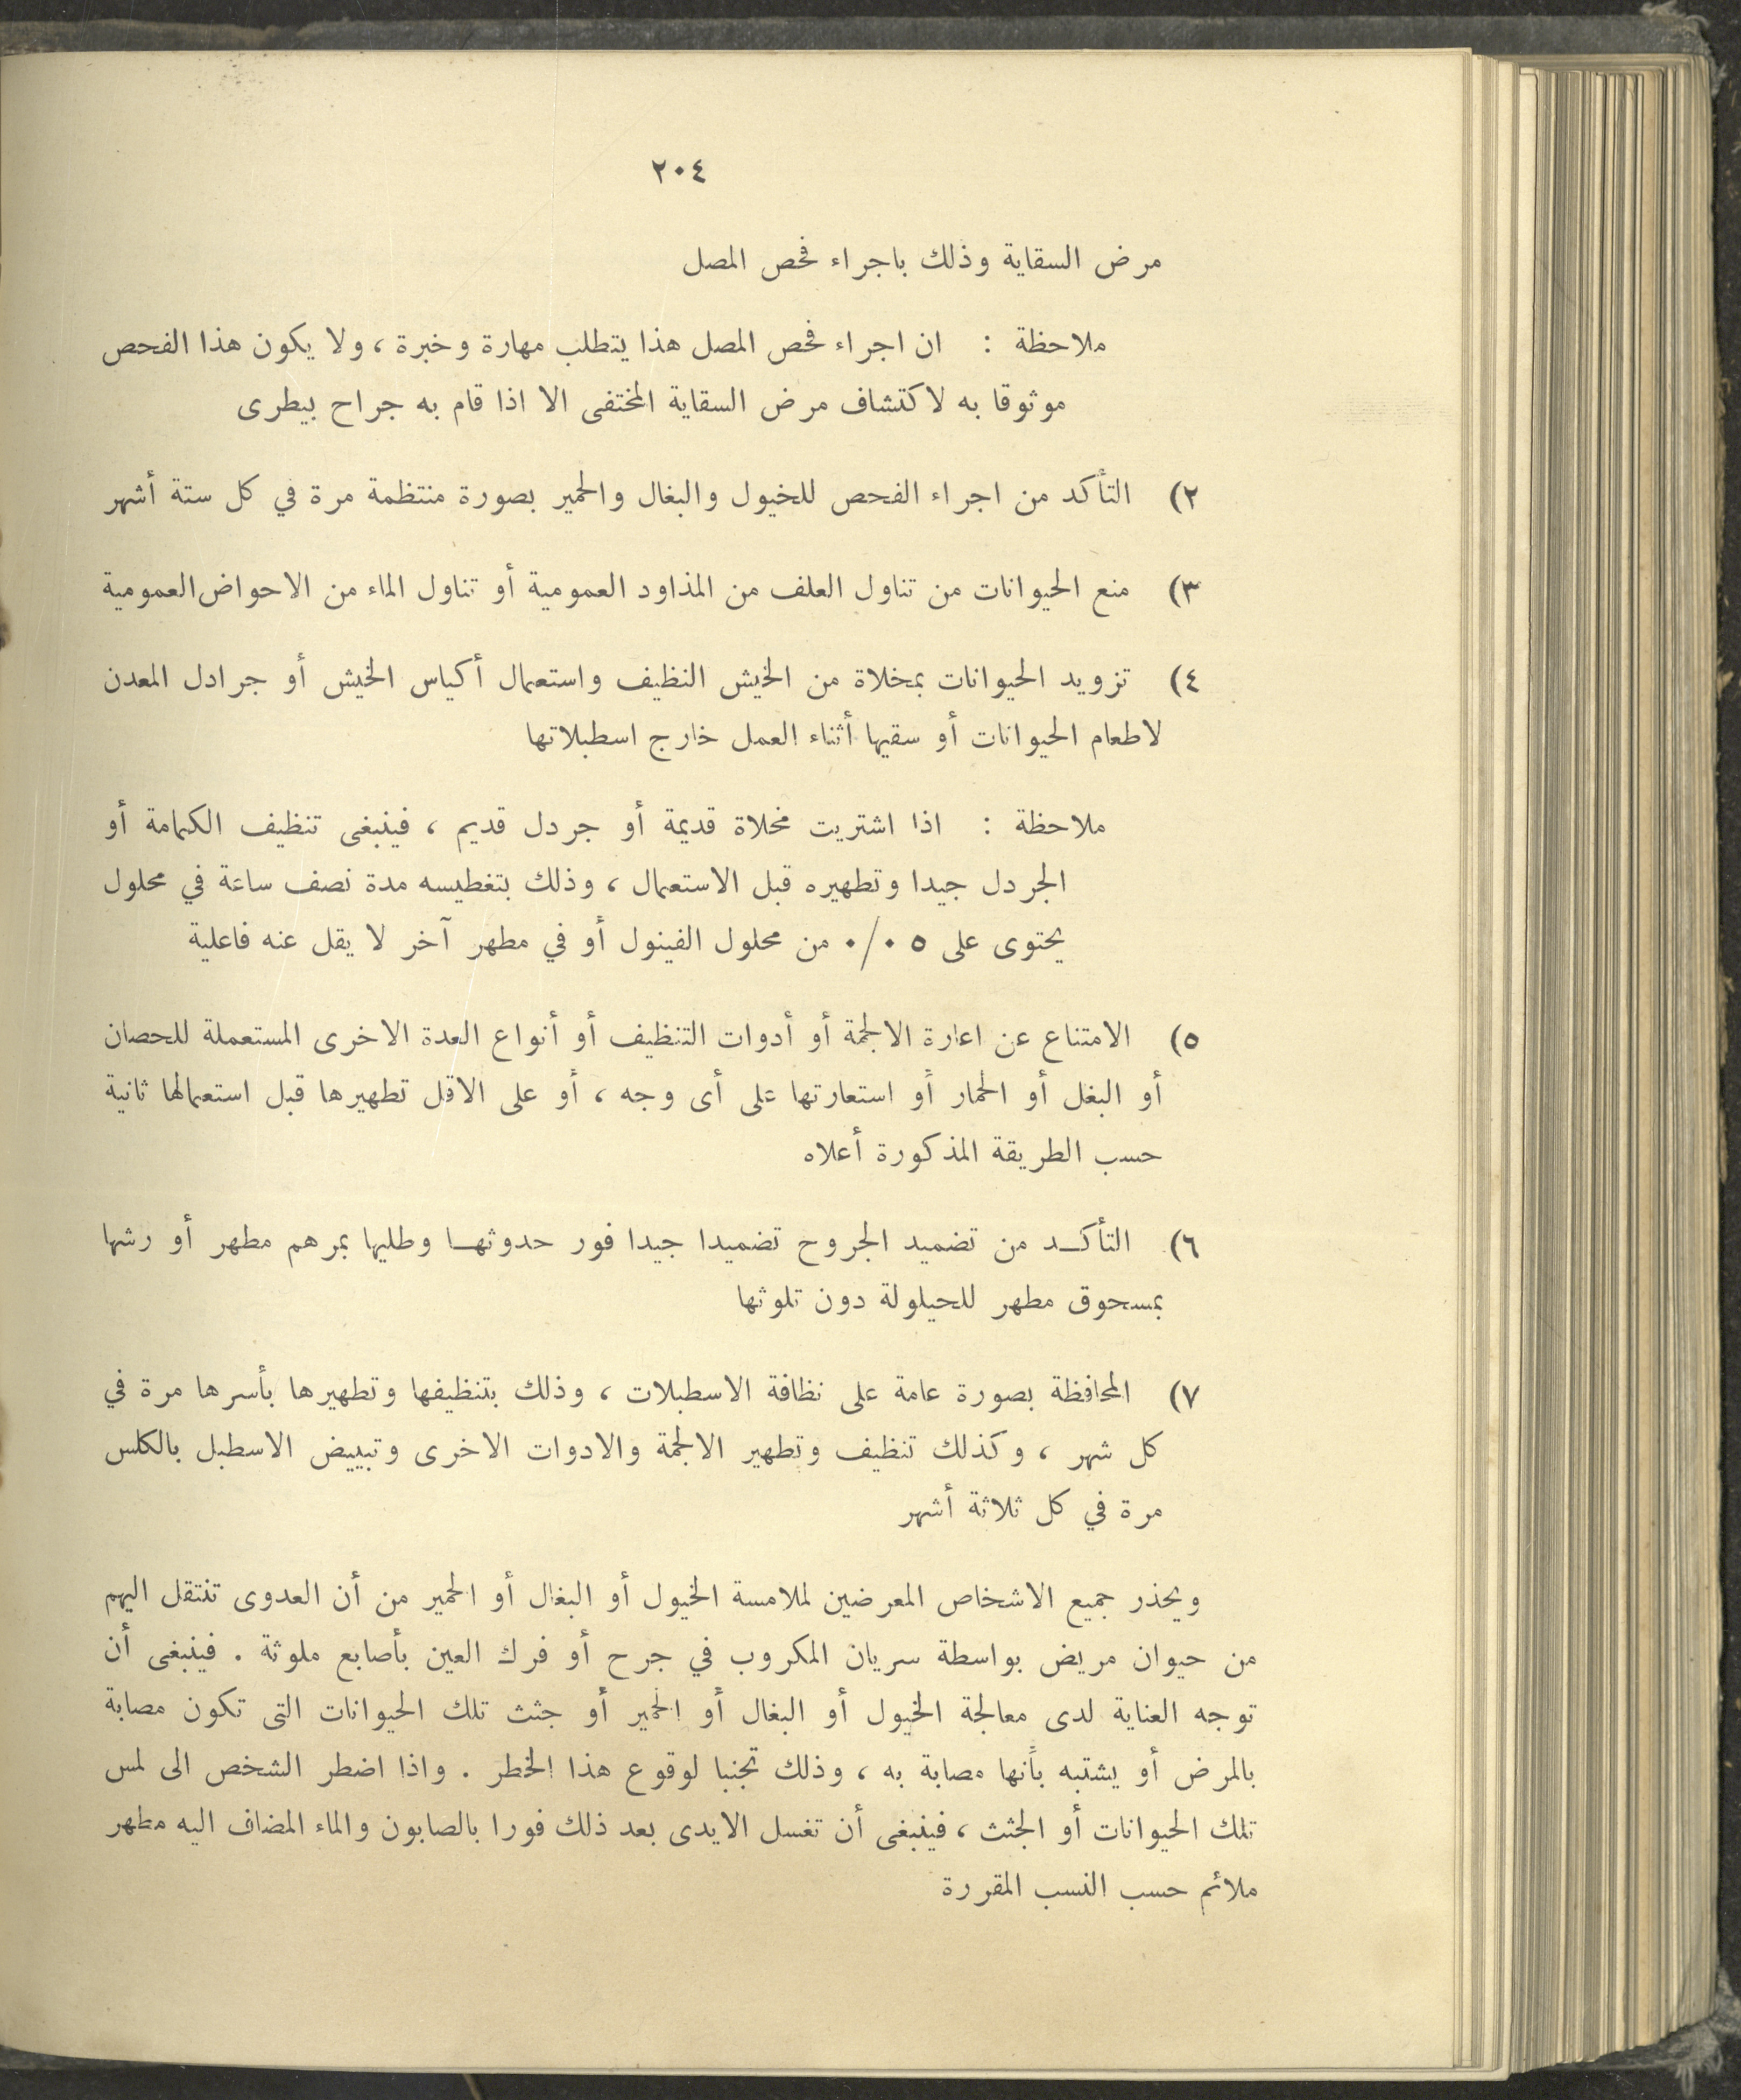 ٢٠٤
مرض السقاية وذلك باجراء فحص المصل
ملاحظة : ان اجراء فحص المصل هذا يتطلب مهارة وخبرة ، ولا يكون هذا الفحص
موثوقا به لاكتشاف مرض السقاية المختفى الا اذا قام به جراح بيطرى
٢) التأكد من اجراء الفحص للخيول والبغال والحمير بصورة منتظمة مرة في كل ستة أشهر
٣) منع الحيوانات من تناول العلف من المذاود العمومية أو تناول الماء من الاحواض العمومية
٤) تزويد الحيوانات بمخلاة من الخيش النظيف واستعمال أكياس الخيش أو جرادل المعدن
لاطعام الحيوانات أو سقيها أثناء العمل خارج اسطبلاتها
ملاحظة : اذا اشتريت مخلاة قديمة أو جردل قديم ، فينبغى تنظيف الكمامة أو
الجردل جيدا وتطهيره قبل الاستعمال ، وذلك بتغطيسه مدة نصف ساعة في محلول
يحتوى على ٥ ٠/٠ من محلول الفينول أو في مطهر آخر لا يقل عنه فاعلية
٥) الامتناع عن اعارة الالجمة أو أدوات التنظيف أو أنواع العدة الاخرى المستعملة للحصان
أو البغل أو الحمار أو استعارتها على أى وجه ، أو على الاقل تطهيرها قبل استعمالها ثانية
حسب الطريقة المذكورة أعلاه
٦) التأكـد من تضميد الجروح تضميدا جيدا فور حدوثهـا وطليها بمرهم مطهر أو رشها
بمسحوق مطهر للحيلولة دون تلوثها
٧) المحافظة بصورة عامة على نظافة الاسطبلات ، وذلك بتنظيفها وتطهيرها بأسرها مرة في
كل شهر ، وكذلك تنظيف وتطهير الالجمة والادوات الاخرى وتبييض الاسطبل بالكلس
مرة في كل ثلاثة أشهر
ويحذر جميع الاشخاص المعرضين لملامسة الخيول أو البغال أو الحمير من أن العدوى تنتقل اليهم
من حيوان مريض بواسطة سريان المكروب في جرح أو فرك العين بأصابع ملوثة . فينبغى أن
توجه العناية لدى معالجة الخيول أو البغال أو الحمير أو جثث تلك الحيوانات التى تكون مصابة
بالمرض أو يشتبه بأنها مصابة به ، وذلك تجنبا لوقوع هذا الخطر . واذا اضطر الشخص الى لمس
تلك الحيوانات أو الجثث ، فينبغى أن تغسل الايدى بعد ذلك فورا بالصابون والماء المضاف اليه مطهر
ملائم حسب النسب المقررة